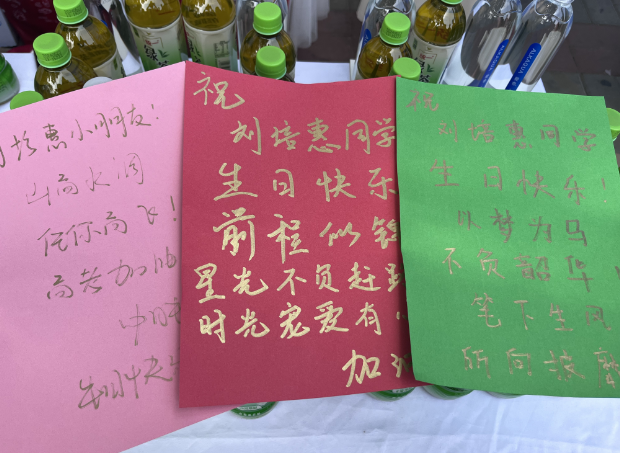 培惠小朋友!
山高水阔
任你高飞!
高考加油
中
生日快乐
祝
刘培惠同学
生日快乐
前程似锦
星光不负赶路
时光宠爱有心
加油
祝
刘培惠同学
生日快乐!
以梦为马
不负韶华
笔下生风
所向披靡